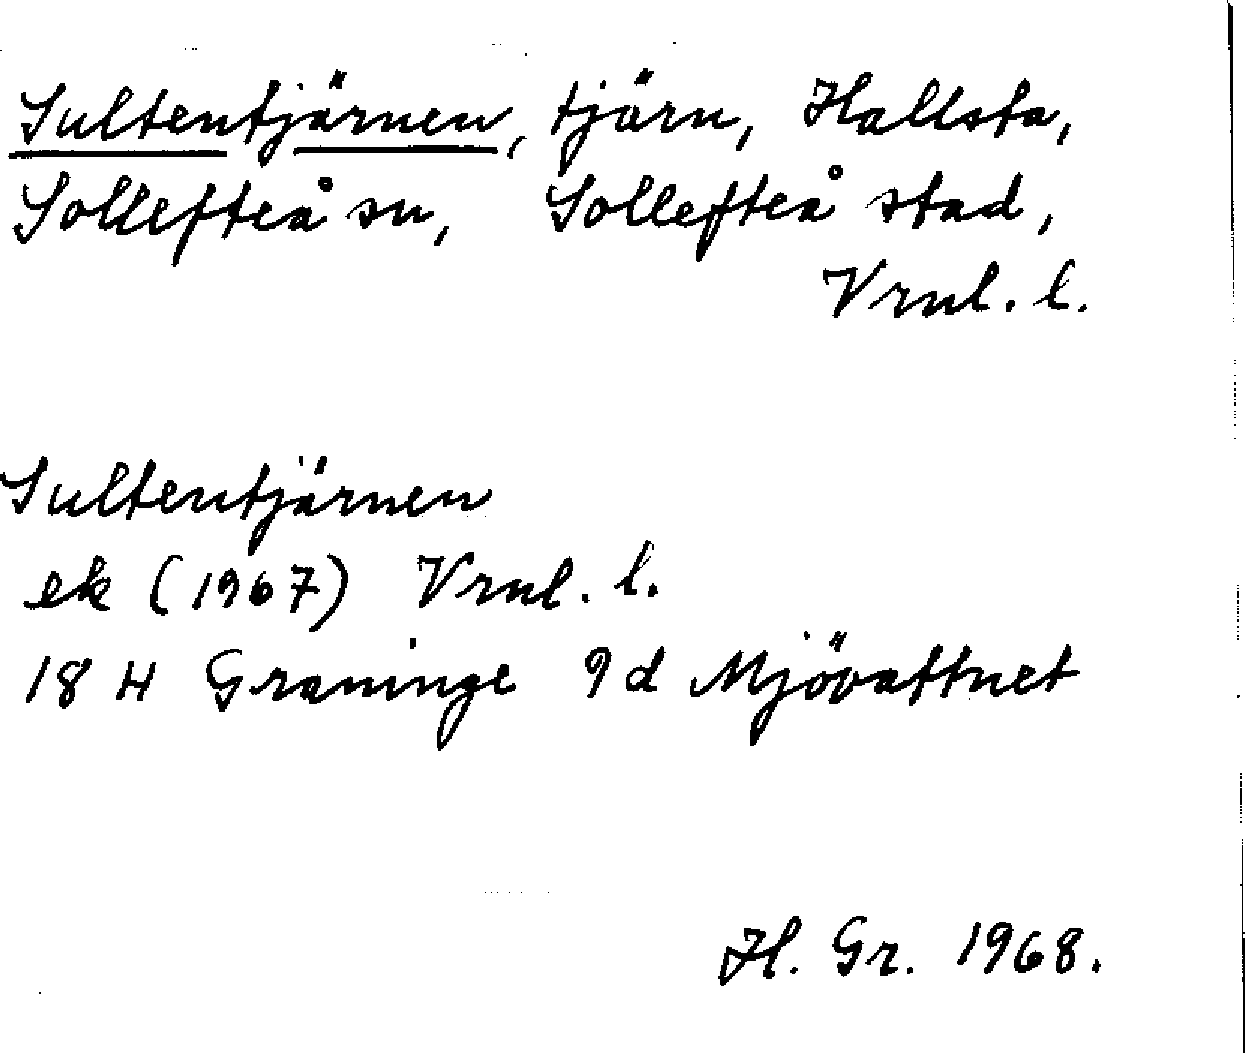 Sultentjärnen, tjärn, Hallsta,
Sollefteå sn, Sollefteå stad,
Vrnl. l.
Sultentjärnen
ek (1967) Vrnl. l.
18 H Graninge 9d Mjövattnet
H. Gr. 1968.